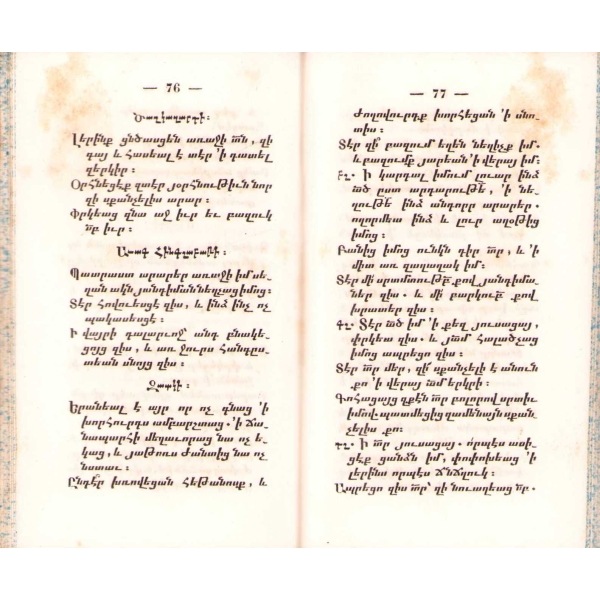 — 76 —
Ծաղկազարդի։
Լերինք ցնծասցեն առաջի տն, զի
գայ և հասեալ է տէր 'ի դատել
զերկիր։
Օրհնեցէք զտէր յօրհնութիւն նոր
զի սքանչելիս արար։
Փրկեաց զնա աջ իւր եւ բազուկ
սբ իւր։
Աւագ Հինգշաբաթի։
Պատրաստ արարեր առաջի իմ սե֊
ղան ակն յանդիման նեղչաց իմոց։
Տէր հովուեսցէ զիս, և ինձ ինչ ոչ
պակասեսցէ։
Ի վայրի դալարւոջ անդ բնակե֊
ցոյց զիս, և առ ջուրս հանգըս֊
տեան սնոյց զիս։
Զատկի։
Երանեալ է այր որ ոչ գնաց 'ի
խորհուրդս ամբարշտաց. 'ի ճա֊
նապարհի մեղաւորաց նա ոչ ե֊
կաց, և յաթոռս ժանտից նա ոչ
նստաւ։
Ընդէր խռովեցան հեթանոսք, և
— 77 —
ժողովուրդք խորհեցան 'ի սնո֊
տիս։
Տէր զի բազում եղեն նեղիչք իմ.
և բազումք յարեան 'ի վերայ իմ։
բկ. Ի կարդալ իմում լուար ինձ
ած ըստ արդարութե, 'ի նե֊
ղութե ինձ անդորր արարեր.
ողորմեա ինձ և լուր աղօթից
իմոց։
Բանից իմոց ունկն դիր տր, և 'ի
միտ առ զաղաղակ իմ։
Տէր մի սրտմտութբ քով յանդիմա֊
ներ զիս. և մի բարկութբ քով
խրատեր զիս։
գկ. Տէր ած իմ 'ի քեզ յուսացայ,
փրկեա զիս. և յամ հալածչաց
իմոց ապրեցո զիս։
Տէր տր մեր, զի սքանչելի է անուն
քո 'ի վերայ ամ երկրի։
Գոհացայց զքէն տր բոլորով սրտիւ
իմով. պատմեցից զամենայն սքան
չելիս քո։
դկ. Ի տր յուսացայ. որպէս ասի֊
ցէք ցանձն իմ, փոփոխեաց 'ի
լերինս որպէս ճնճղուկ։
Ապրեցո զիս տր՝ զի նուաղեաց սբ.